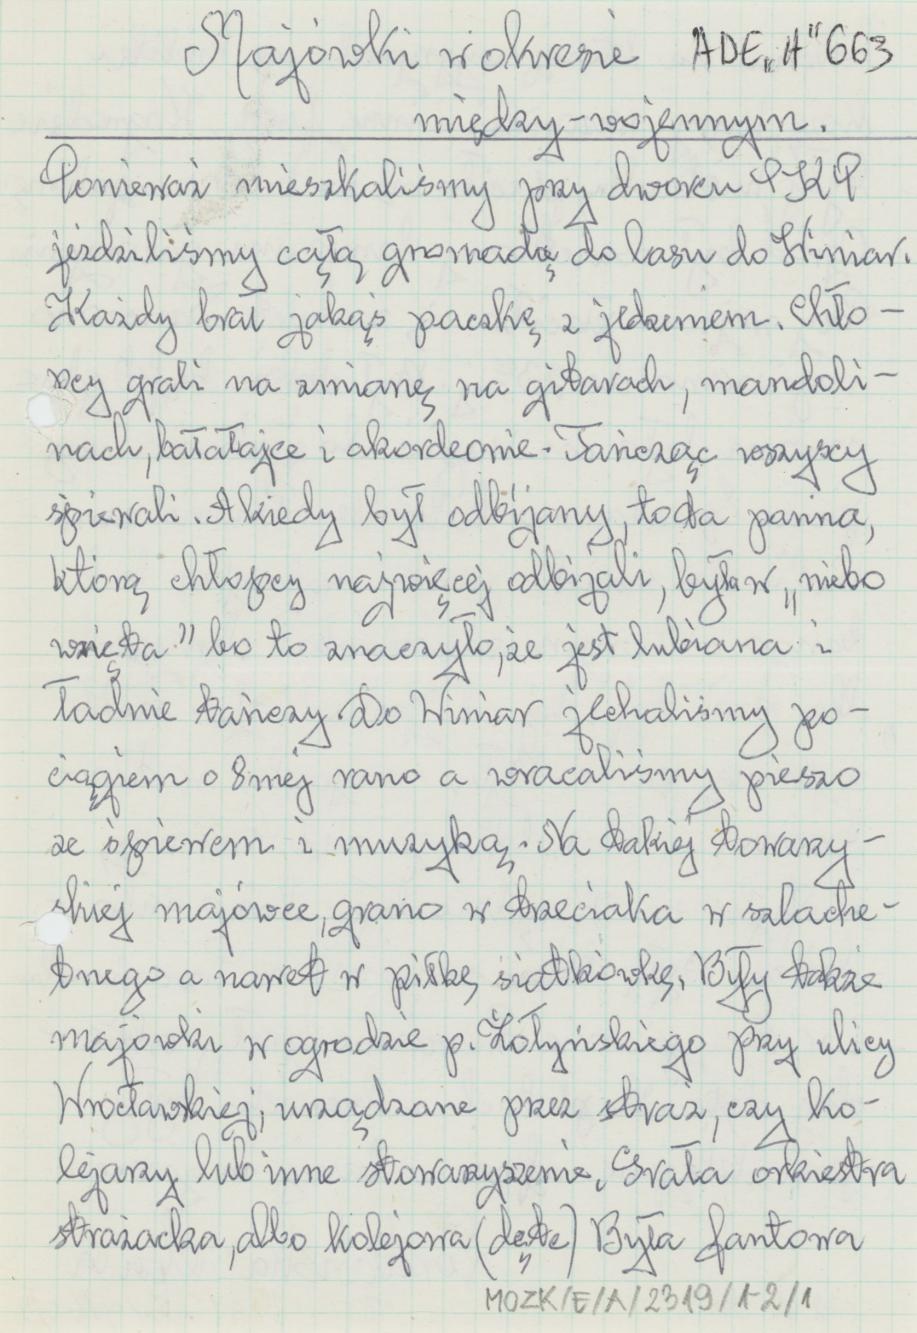 Majówki w okresie ADE„A"663
między-wojennym.
Ponieważ mieszkaliśmy przy dworcu PKP
jeździliśmy całą gromadą do lasu do Winiar.
Każdy brał jakąś paczkę z jedzeniem. Chło-
pcy grali na zmianę na gitarach, mandoli-
nach, bałałajce i akordeonie. Tańcząc wszyscy
śpiewali. A kiedy był odbijany, to ta panna,
którą chłopcy najwięcej odbijali, była w „niebo
wzięta" bo to znaczyło, że jest lubiana i
ładnie tańczy. Do Winiar jechaliśmy po-
ciągiem o 8mej rano a wracaliśmy pieszo
ze śpiewem i muzyką. Na takiej towarzy-
skiej majówce, grano w trzeciaka w szlache-
tnego a nawet w piłkę siatkówkę. Były także
majówki w ogrodzie p. Żołyńskiego przy ulicy
Wrocławskiej, urządzane przez straż, czy ko-
lejarzy lub inne stowarzyszenie. Grała orkiestra
strażacka, albo kolejowa (dęte) Była fantowa
MOZK/E/A/2319/1-2/1